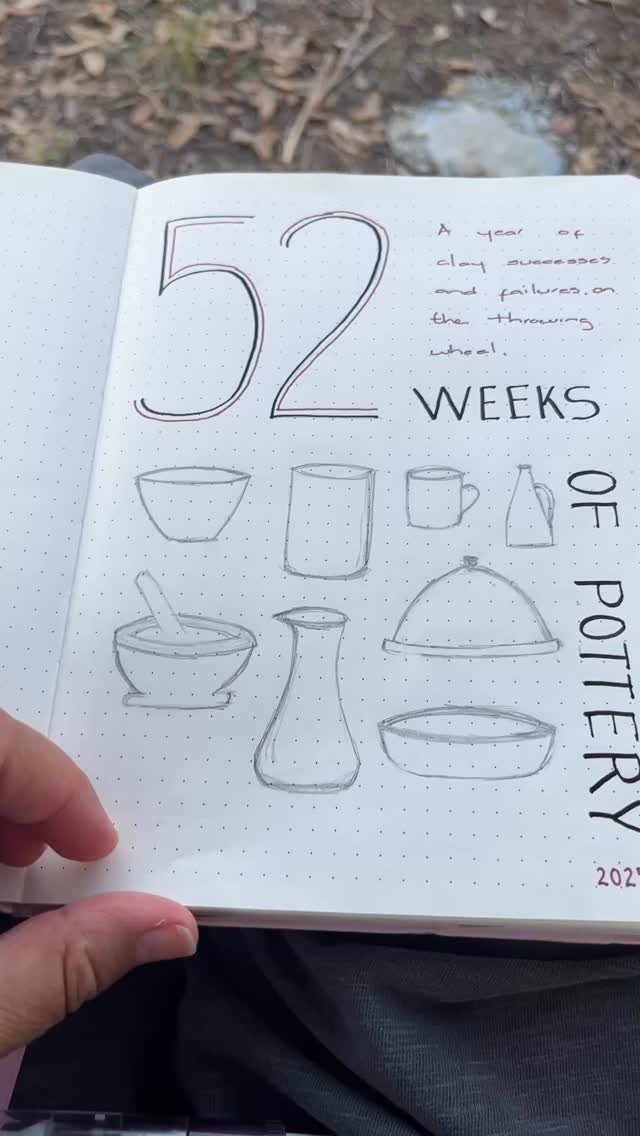 52
A year of
clay successes
and failures on
the throwing
wheel.
WEEKS
OF POTTERY